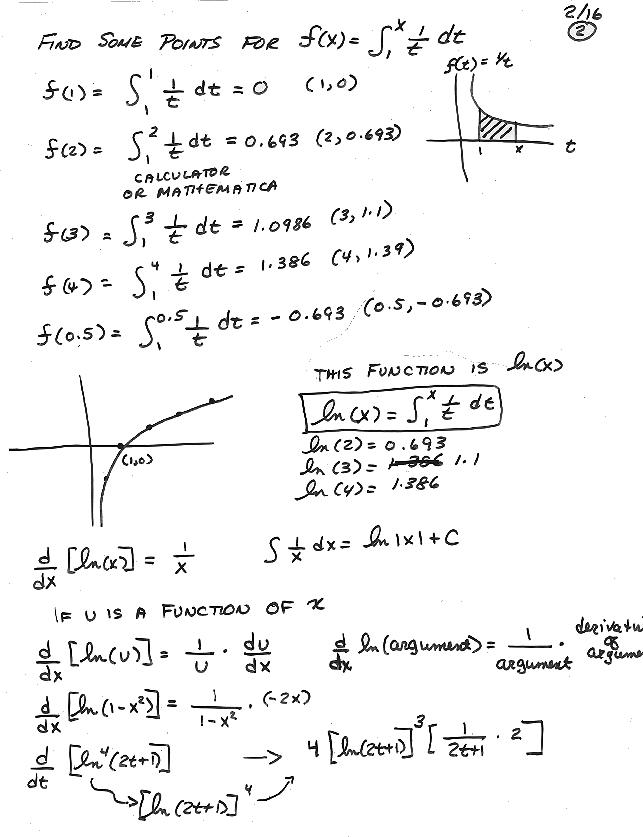 2/16
②
FIND SOME POINTS FOR f(x) = ∫₁ˣ 1/t dt
f(t) = 1/t
f(1) = ∫₁¹ 1/t dt = 0 (1,0)
f(2) = ∫₁² 1/t dt = 0.693 (2, 0.693)
1 x t
CALCULATOR
OR MATHEMATICA
f(3) = ∫₁³ 1/t dt = 1.0986 (3, 1.1)
f(4) = ∫₁⁴ 1/t dt = 1.386 (4, 1.39)
f(0.5) = ∫₁^0.5 1/t dt = -0.693 (0.5, -0.693)
THIS FUNCTION IS ln(x)
ln(x) = ∫₁ˣ 1/t dt
(1,0)
ln(2) = 0.693
ln(3) = 1.386 1.1
ln(4) = 1.386
d/dx [ln(x)] = 1/x ∫ 1/x dx = ln|x| + C
IF U IS A FUNCTION OF x
d/dx [ln(u)] = 1/u · du/dx d/dx ln(argument) = 1/argument · derivativ of argume
d/dx [ln(1-x²)] = 1/(1-x²) · (-2x)
d/dt [ln⁴(2t+1)] → 4 [ln(2t+1)]³ [1/(2t+1) · 2]
[ln(2t+1)]⁴